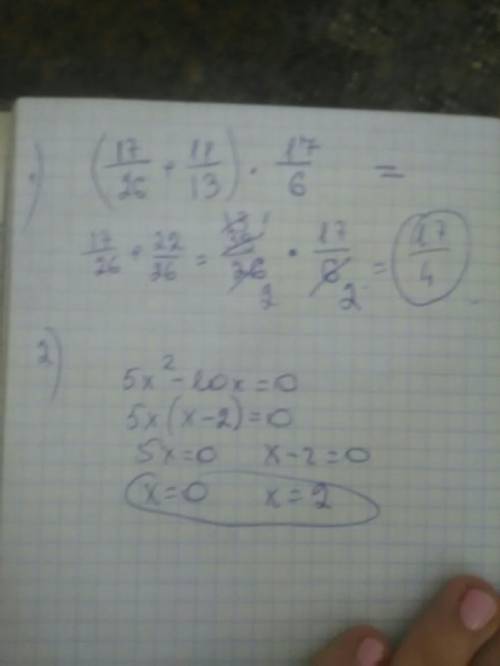 1) (17/26 + 11/13) · 17/6 =
17/26 + 22/26 = · 17/6 = 17/4
2)
5x² - 10x = 0
5x(x - 2) = 0
5x = 0 x - 2 = 0
x = 0 x = 2